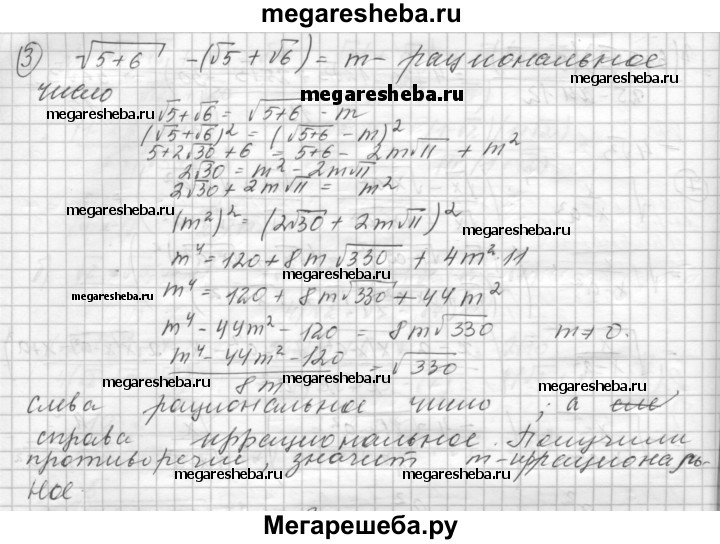 megaresheba.ru
3) √(5+6) - (√5 + √6) = m - рациональное
число
megaresheba.ru
megaresheba.ru √5+√6 = √(5+6) - m
(√5+√6)² = (√(5+6) - m)²
5+2√30+6 = 5+6 - 2m√11 + m²
2√30 = m² - 2m√11
2√30 + 2m√11 = m²
megaresheba.ru
megaresheba.ru
(m²)² = (2√30 + 2m√11)²
m⁴ = 120 + 8m√330 + 4m²·11
megaresheba.ru
megaresheba.ru m⁴ = 120 + 8m√330 + 44m²
m⁴ - 44m² - 120 = 8m√330 m≠0.
(m⁴ - 44m² - 120)/8m = √330
megaresheba.ru megaresheba.ru megaresheba.ru
слева рациональное число, а
справа иррациональное. Получили
противоречие, значит m-иррациональ-
ное.
megaresheba.ru megaresheba.ru
Мегарешеба.ру